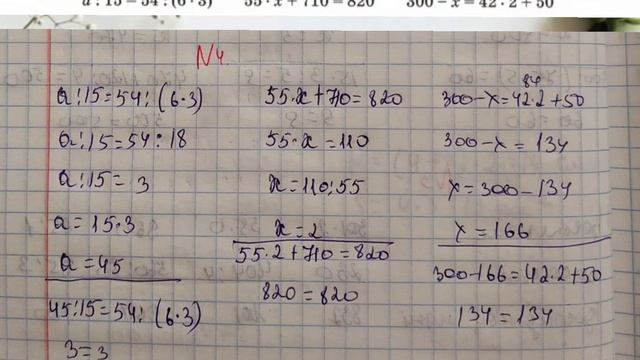 a : 15 = 54 : (6 · 3)    55 · x + 710 = 820    300 − x = 42 · 2 + 50
N4.
a:15=54:(6·3)
a:15=54:18
a:15=3
a=15·3
a=45
45:15=54:(6·3)
3=3
55·x+710=820
55·x=110
x=110:55
x=2
55·2+710=820
820=820
84
300-x=42·2+50
300-x=134
x=300-134
x=166
300-166=42·2+50
134=134